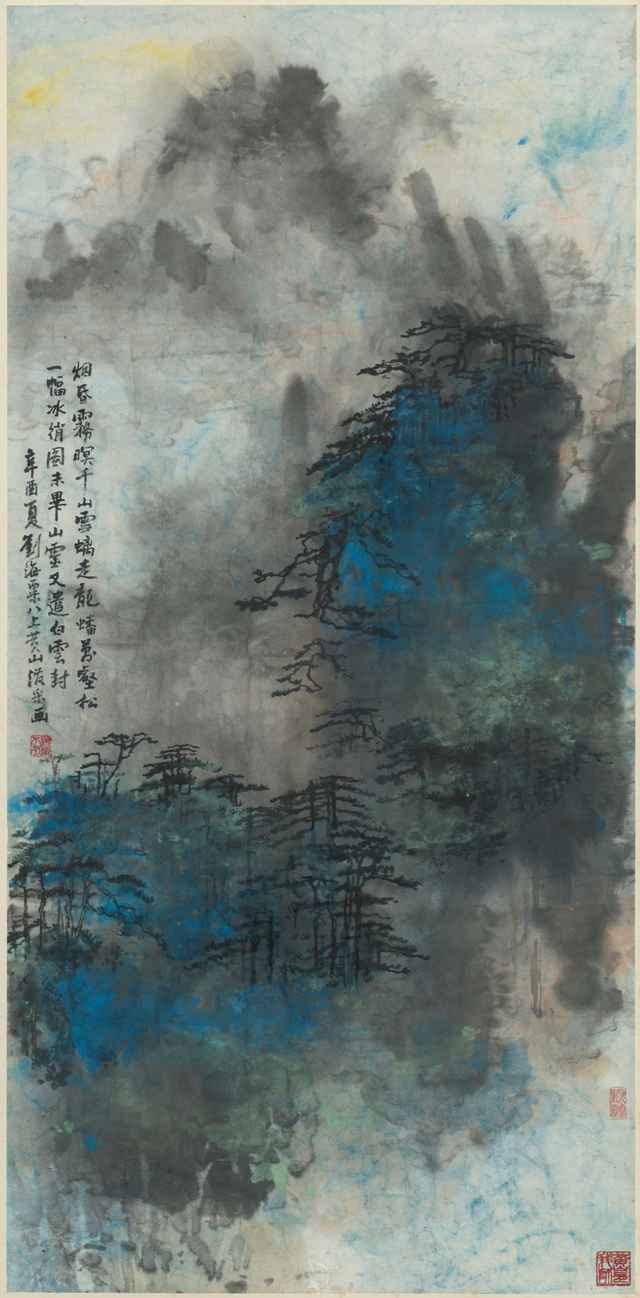 烟昏霧暝千山雪螭走龍蟠萬壑松
一幅冰綃圖未畢山靈又遣白雲封
辛酉夏劉海粟八上黄山潑采画